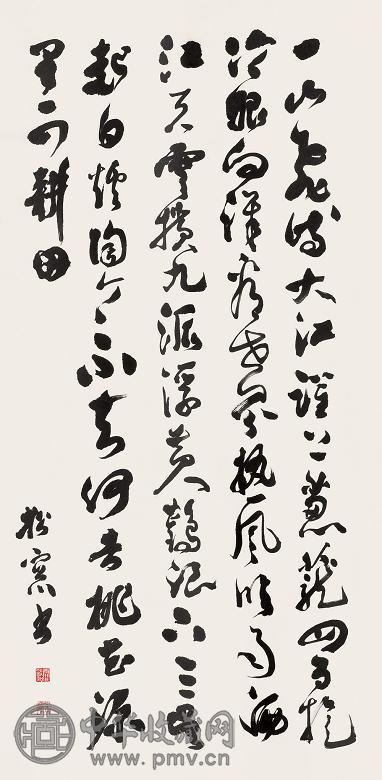 一山飛峙大江躍上葱蘢四百旋
冷眼向洋看世界熱風吹雨灑
江天雲横九派浮黄鶴浪下三吴
起白煙陶令不知何處去桃花源
里可耕田
松窗書
中华收藏网
www.pmv.cn